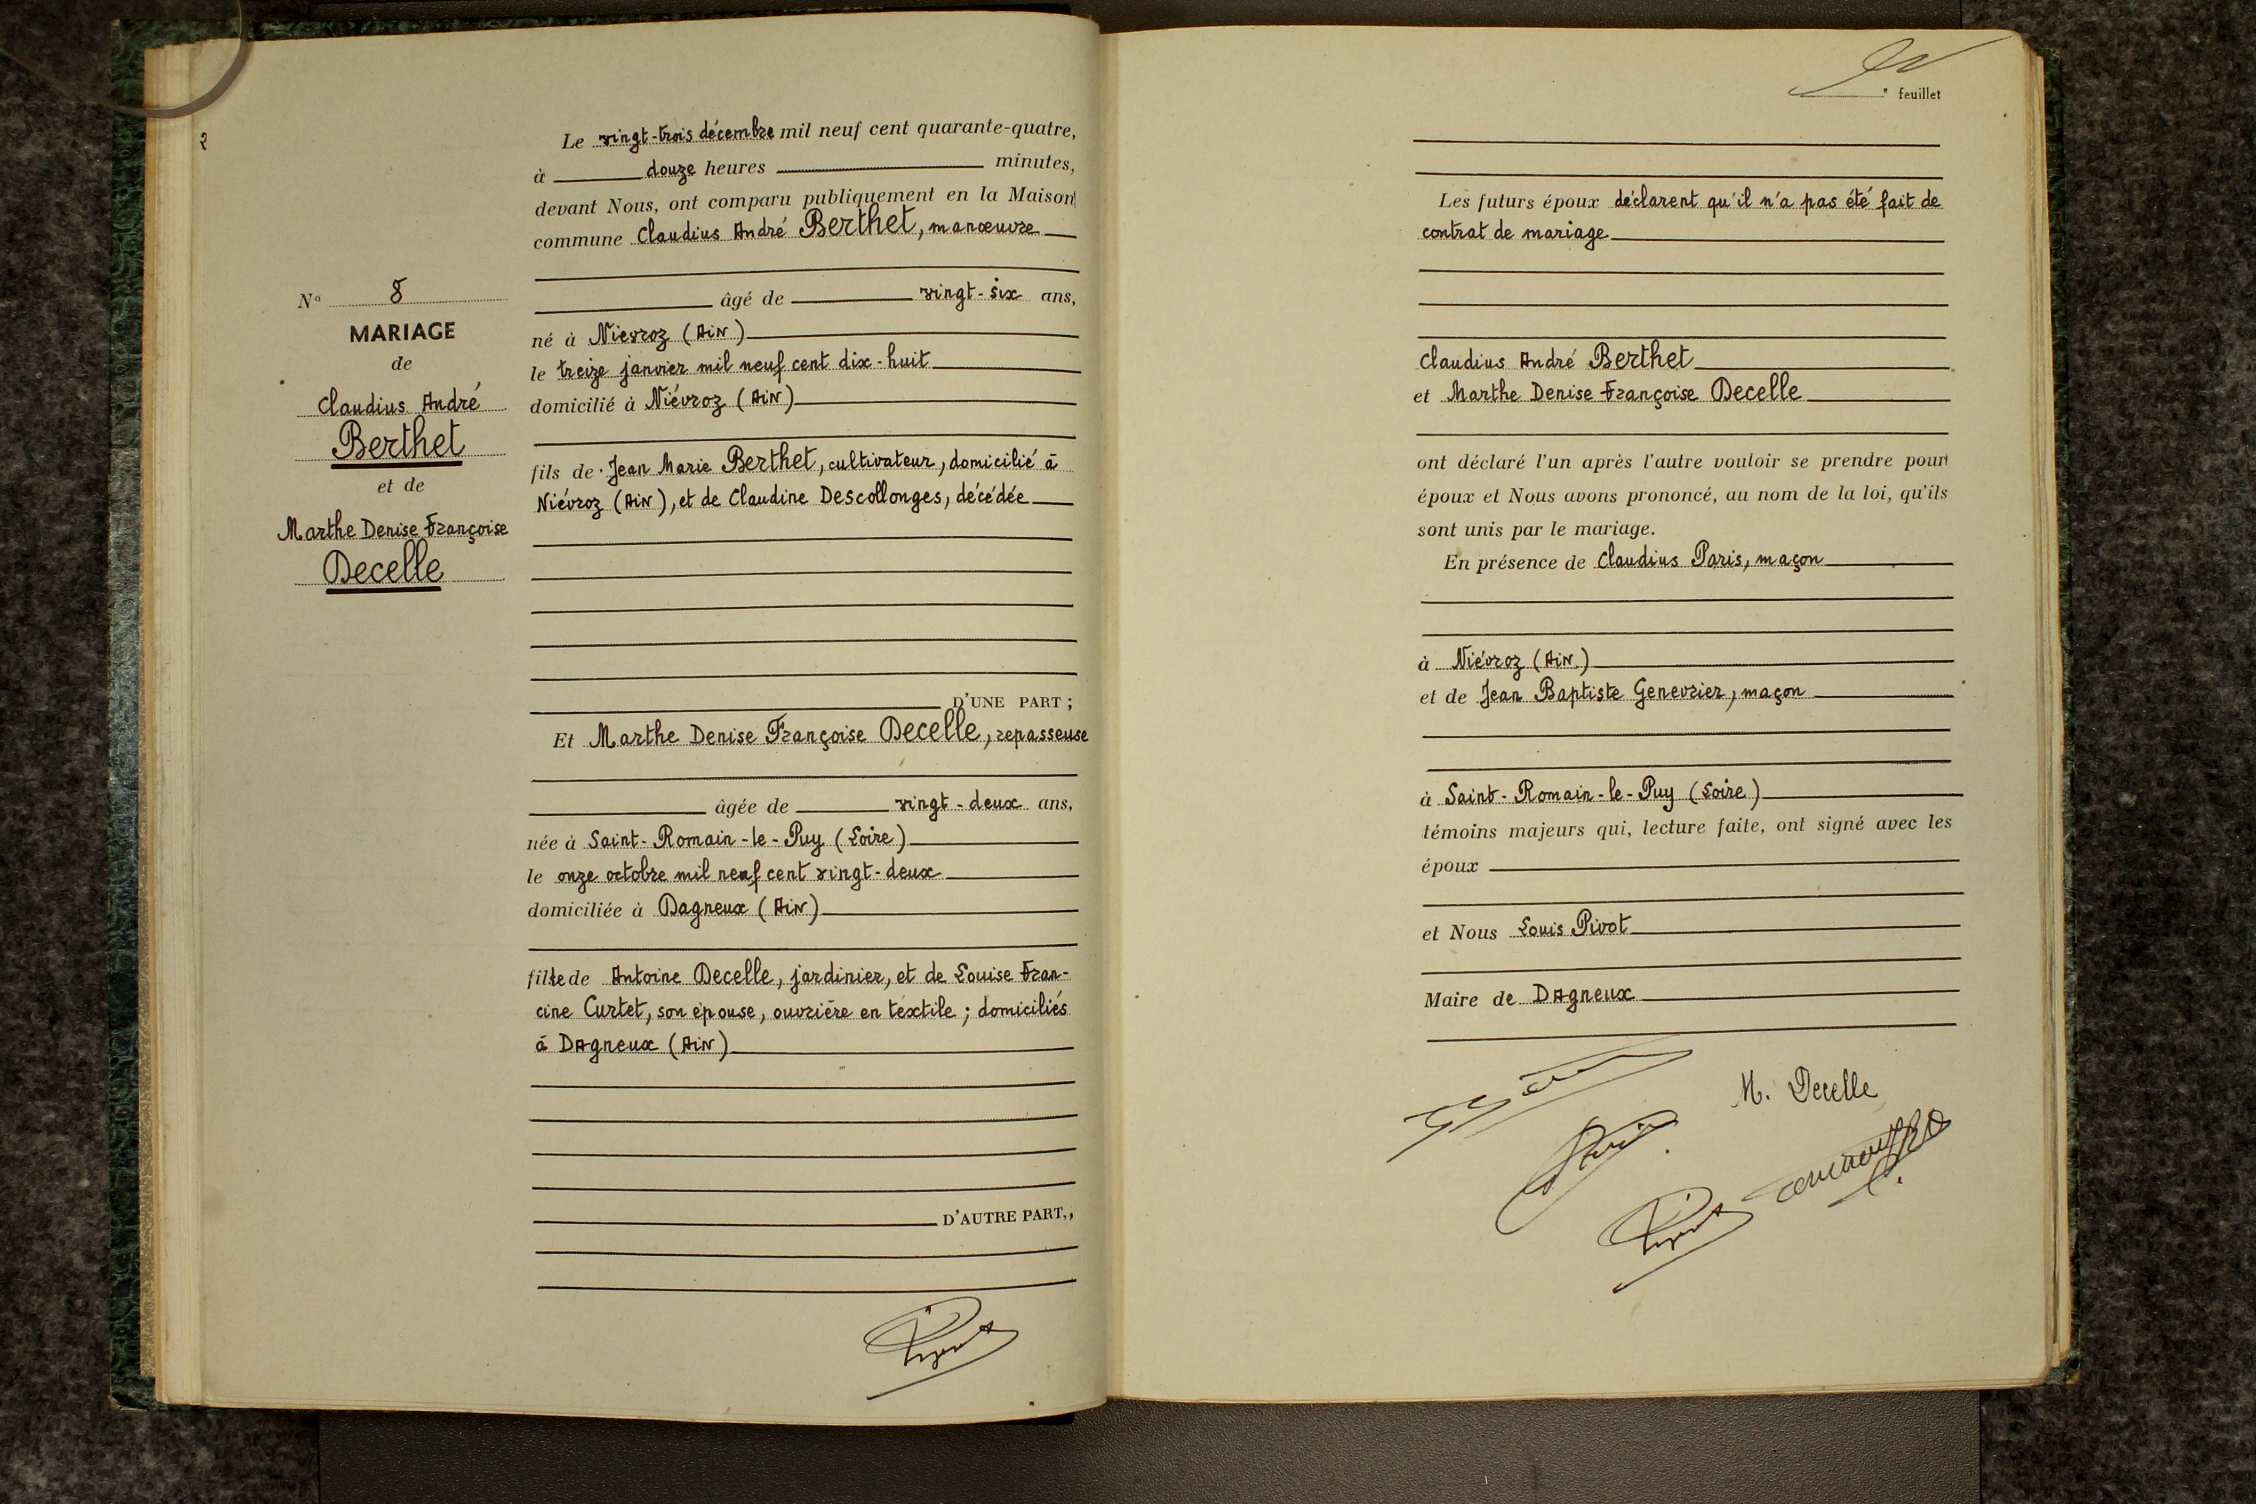 2
Le vingt-trois décembre mil neuf cent quarante-quatre,
à douze heures minutes,
devant Nous, ont comparu publiquement en la Maison
commune Claudius André Berthet, manœuvre
âgé de vingt-six ans,
né à Nievroz (Ain)
le treize janvier mil neuf cent dix-huit
domicilié à Niévroz (Ain)
fils de Jean Marie Berthet, cultivateur, domicilié à
Niévroz (Ain), et de Claudine Descollonges, décédée
D'UNE PART ;
N° 8
MARIAGE
de
Claudius André
Berthet
et de
Marthe Denise Françoise
Decelle
Et Marthe Denise Françoise Decelle, repasseuse
âgée de vingt-deux ans,
née à Saint-Romain-le-Puy (Loire)
le onze octobre mil neuf cent vingt-deux
domiciliée à Dagneux (Ain)
fille de Antoine Decelle, jardinier, et de Louise Fran-
cine Curtet, son épouse, ouvrière en textile ; domiciliés
à Dagneux (Ain)
D'AUTRE PART,,
Pivot
feuillet
Les futurs époux déclarent qu'il n'a pas été fait de
contrat de mariage
Claudius André Berthet
et Marthe Denise Françoise Decelle
ont déclaré l'un après l'autre vouloir se prendre pour
époux et Nous avons prononcé, au nom de la loi, qu'ils
sont unis par le mariage.
En présence de Claudius Paris, maçon
à Niévroz (Ain)
et de Jean Baptiste Genevrier, maçon
à Saint-Romain-le-Puy (Loire)
témoins majeurs qui, lecture faite, ont signé avec les
époux
et Nous Louis Pivot
Maire de Dagneux
M. Decelle
Paris
Pivot